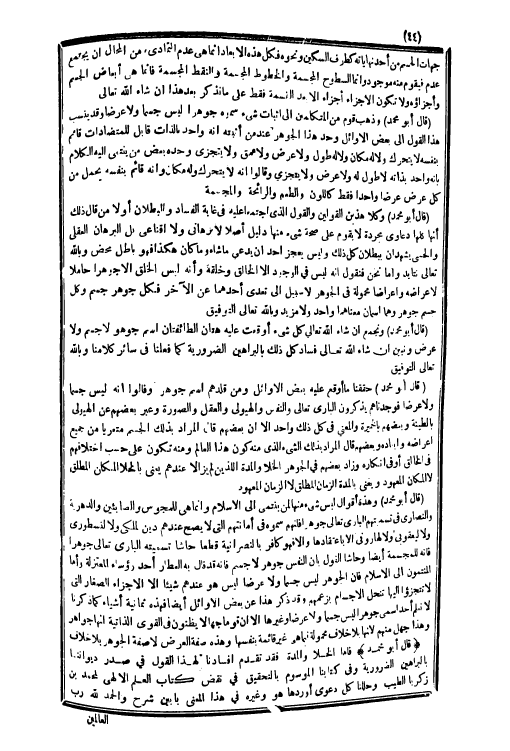 (٤٤)
جهات الجسم من أحد نهاياته كطرف السكين ونحوه فكل هذه الابعاد انما هي عدم التمادى، من المحال ان يجتمع
عدم فيقوم منه موجود وانما السطوح المجسمة والخطوط المجسمة والنقط المجسمة فانما هي أبعاض الجسم
وأجزاؤه ولا تكون الاجزاء أجزاء الا بعد القسمة فقط على مانذكر بعد هذا ان شاء الله تعالى
(قال أبو محمد) وذهب قوم من المتكلمين الى اثبات شيء سموه جوهرا ليس جسما ولا عرضا وقد ينسب
هذا القول الى بعض الاوائل وحد هذا الجوهر عند من أثبته انه واحد بالذات قابل للمتضادات قائم
بنفسه لا يتحرك ولا له مكان ولا له طول ولا عرض ولا عمق ولا يتجزى وحده بعض من ينتمى اليه الكلام
بانه واحد بذاته لا طول له ولا عرض ولا يتجزي وقالوا انه لا يتحرك وله مكان وانه قائم بنفسه يحمل من
كل عرض عرضا واحدا فقط كاللون والطعم والرائحة والمجسة
(قال أبو محمد) وكلا هذين القولين والقول الذى اجتمعا عليه في غاية الفساد والبطلان أولا من قال ذلك
أنها كلها دعاوى مجردة لا يقوم على صحة شيء منها دليل أصلا لا برهانى ولا اقناعى بل البرهان العقلي
والحسى يشهدان ببطلان كل ذلك وليس يعجز أحد ان يدعي ماشاء وما كان هكذا فهو باطل محض وبالله
تعالى نتايد واما نحن فنقول انه ليس في الوجود الا الخالق وخلقه وأنه ليس الخلق الا جوهرا حاملا
لاعراضه واعراضا محمولة في الجوهر لا سبيل الى تعدى أحدهما عن الآخر فكل جوهر جسم وكل
جسم جوهر وهما اسمان معناهما واحد ولا مزيد وبالله تعالى التوفيق
(قال أبو محمد) ونجمع ان شاء الله تعالى كل شيء أوقعت عليه هتان الطائفتان اسم جوهر لا جسم ولا
عرض ونبين ان شاء الله تعالى فساد كل ذلك بالبراهين الضرورية كما فعلنا في سائر كلامنا وبالله
تعالى التوفيق
(قال أبو محمد) حققنا ما أوقع عليه بعض الاوائل ومن قلدهم اسم جوهر وقالوا انه ليس جسما
ولا عرضا فوجدناهم يذكرون البارى تعالى والنفس والهيولى والعقل والصورة وعبر بعضهم عن الهيولى
بالطينة وبعضهم بالخميرة والمعنى في كل ذلك واحد الا ان بعضهم قال المراد بذلك الجسم متعريا من جميع
اعراضه وابعاده وبعضهم قال المراد بذلك الشيء الذى منه كون هذا العالم ومنه تكون على حسب اختلافهم
في الخالق أو في انكاره وزاد بعضهم في الجوهر الخلا والمدة اللذين لم يزالا عندهم يعنى بالخلا المكان المطلق
لا المكان المعهود ويعنى بالمدة الزمان المطلق لا الزمان المعهود
(قال أبو محمد) وهذه أقوال ليس شيء منها لمن ينتمى الى الاسلام وانما هي للمجوس والصابئين والدهرية
والنصارى في تسميتهم البارى تعالى جوهرا فانهم سموه في أمانتهم التى لا يصح عندهم دين لملكى ولا لنسطورى
ولا ليعقوبى ولا لهارونى الا باعتقادها والا فهو كافر بالنصرانية قطعا حاشا تسميته البارى تعالى جوهرا
فانه للمجسمة أيضا وحاشا القول بان النفس جوهر لا جسم فانه قد قال به العطار أحد رؤساء المعتزلة وأما
المنتمون الى الاسلام فان الجوهر ليس جسما ولا عرضا ليس هو عندهم شيئا الا الاجزاء الصغار التى
لا تتجزؤا اليها تنحل الاجسام بزعمهم وقد ذكر هذا عن بعض الاوائل أيضا فهذه ثمانية أشياء كما ذكرنا
لا نعلم أحدا سمى جوهرا ليس جسما ولا عرضا وغيرها الا ان قوما جهالا يظنون في القوى الذاتية انها جواهر
وهذا جهل منهم لانها بلا خلاف محمولة فيما هي غير قائمة بنفسها وهذه صفة العرض لا صفة الجوهر بلا خلاف
﴿قال أبو محمد﴾ فاما الخلا والمدة فقد تقدم افسادنا لهذا القول في صدر ديواننا
بالبراهين الضرورية وفى كتابنا الموسوم بالتحقيق في نقض كتاب العلم الالهى لمحمد بن
زكريا الطبيب وحللنا كل دعوى أوردها هو وغيره في هذا المعنى بابين شرح والحمد لله رب
العالمين